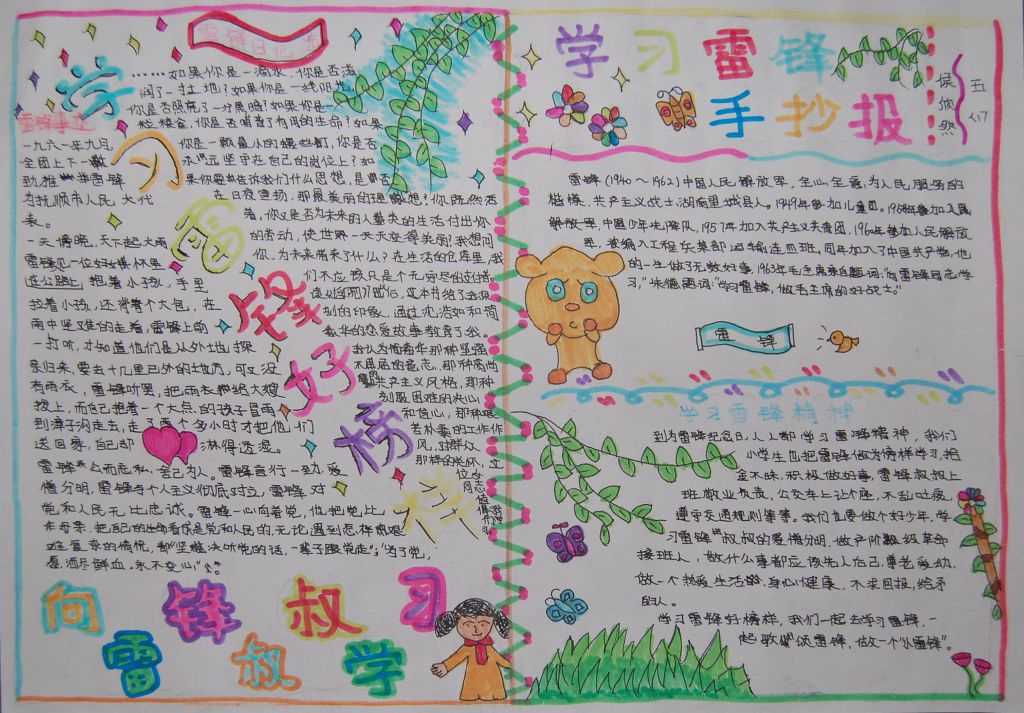 雷锋日记
……如果你是一滴水,你是否滋
润了一寸土地?如果你是一线阳光,
你是否照亮了一分黑暗?如果你是一
粒粮食,你是否哺育了有用的生命?如果
你是一颗最小的螺丝钉,你是否
永远坚守在自己的岗位上?如
果你要告诉我们什么思想,是否
在日夜宣扬,那最美丽的理想?你既然活
着,你又是否为未来的人类的生活付出你
的劳动,使世界一天天变得美丽?我想问
你,为未来带来了什么?在生活的仓库里,我
们不应该只是个无穷尽的支付者。
刻的印象,通过
我认为
那种坚强
不屈的意志,那种高尚
共产主义风格,那种
克服困难的决心
和信心,那种艰
苦朴素的工作作
风,对群众
学习雷锋好榜样
雷锋事迹
一九六一年九月,
全团上下一致
劲推举雷锋
为抚顺市人民大代
表。
一天傍晚,天下起大雨
雷锋见一位妇女怀里
在公路上抱着小孩,手里
拉着小孩,还背着个大包,在
雨中坚难的走着,雷锋上前
一打听,才知道他们是从外地探
亲归来,要去十几里已外的地方,可又没
有雨衣,雷锋听罢,把雨衣
披上,而自己抱着一个大点的孩子冒雨
送回家,自己却
淋得透湿。
雷锋
公而忘私,舍己为人。雷锋言行一致,爱
憎分明,雷锋与个人主义彻底对立,雷锋对
党和人民无比忠诚。雷锋一心向着党,他把党比
作母亲,把自己的生命看成是党和人民的,无论遇到怎样艰
难复杂的情况,都坚决听党的话,一辈子跟党走";"为了党,
愿洒尽鲜血,永不变心。"
向雷锋叔叔学习
学习雷锋
手抄报
五
雷锋(1940~1962)中国人民解放军,全心全意为人民服务的
楷模,共产主义战士,湖南望城县人。1949年参加儿童团。
1957年加入共产主义共青团,1960年参加人民解放
军,被编入工程兵某部运输连四班,同年加入了中国共产党,他
的一生做了无数好事,1963年毛主席亲自题词:"向雷锋同志学
习,"朱德题词:"学习雷锋,做毛主席的好战士。"
雷锋
学习雷锋精神
到为雷锋纪念日,人人都学习雷锋精神,我们
小学生也把雷锋做为榜样学习,拾
金不昧,积极做好事,雷锋叔叔上
班敬业负责,公交车上让个座,不乱吐痰,
遵守交通规则等等。我们也要做个好少年,学
习雷锋叔叔的爱憎分明,做产阶级革命
接班人,做什么事都应该先人后己,尊老爱幼,
做一个热爱生活的,身心健康,不求回报,给予
的人。
学习雷锋好榜样,我们一起去学习雷锋,一
起歌颂雷锋,做一个"小雷锋"。